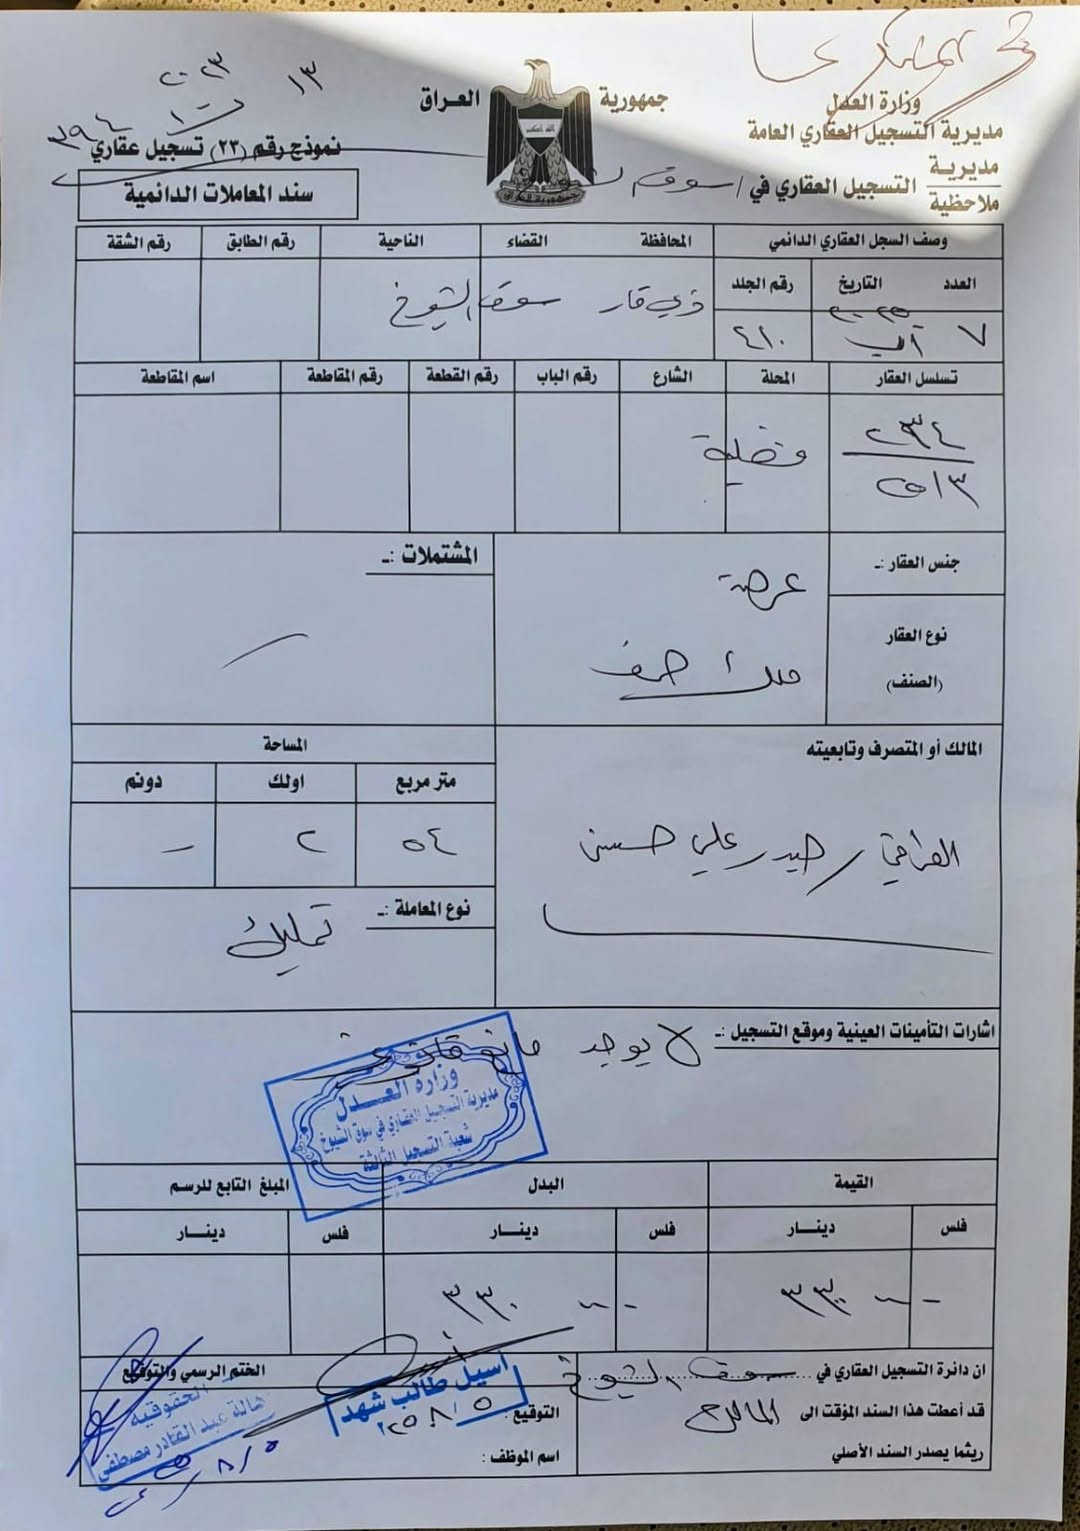 وزارة العدل
مديرية التسجيل العقاري العامة
مديرية
ملاحظية
التسجيل العقاري في / سوق الشيوخ
جمهورية العراق
الله أكبر
جمهورية العراق
١٣
٢٠٢٣
٣٩٤
نموذج رقم (٢٣) تسجيل عقاري
سند المعاملات الدائمية
وصف السجل العقاري الدائمي
المحافظة
القضاء
الناحية
رقم الطابق
رقم الشقة
العدد
التاريخ
رقم الجلد
ذي قار
سوق الشيوخ
٧
آب ٢٠٢٥
٤١٠
تسلسل العقار
المحلة
الشارع
رقم الباب
رقم القطعة
رقم المقاطعة
اسم المقاطعة
٢٣٤
١٣
فضلية
جنس العقار :ـ
عرصة
المشتملات :ـ
نوع العقار
(الصنف)
ملك صرف
المالك أو المتصرف وتابعيته
العراقي / حيدر علي حسين
المساحة
متر مربع
اولك
دونم
٥٤
٢
نوع المعاملة :ـ
تمليك
اشارات التأمينات العينية وموقع التسجيل :ـ
لا يوجد مانع قانوني
وزارة العـدل
مديرية التسجيل العقاري في سوق الشيوخ
شعبة التسجيل الثالثة
القيمة
البدل
المبلغ التابع للرسم
فلس
دينـــار
فلس
دينـــار
فلس
دينـــار
ان دائرة التسجيل العقاري في سوق الشيوخ
قد أعطت هذا السند المؤقت الى المالك
ريثما يصدر السند الأصلي
الختم الرسمي والتوقيع
اسيل طالب شهد
التوقيع :
٥/٨/٢٠٢٥
اسم الموظف :
الحقوقية
هالة عبد القادر مصطفى
٥/٨